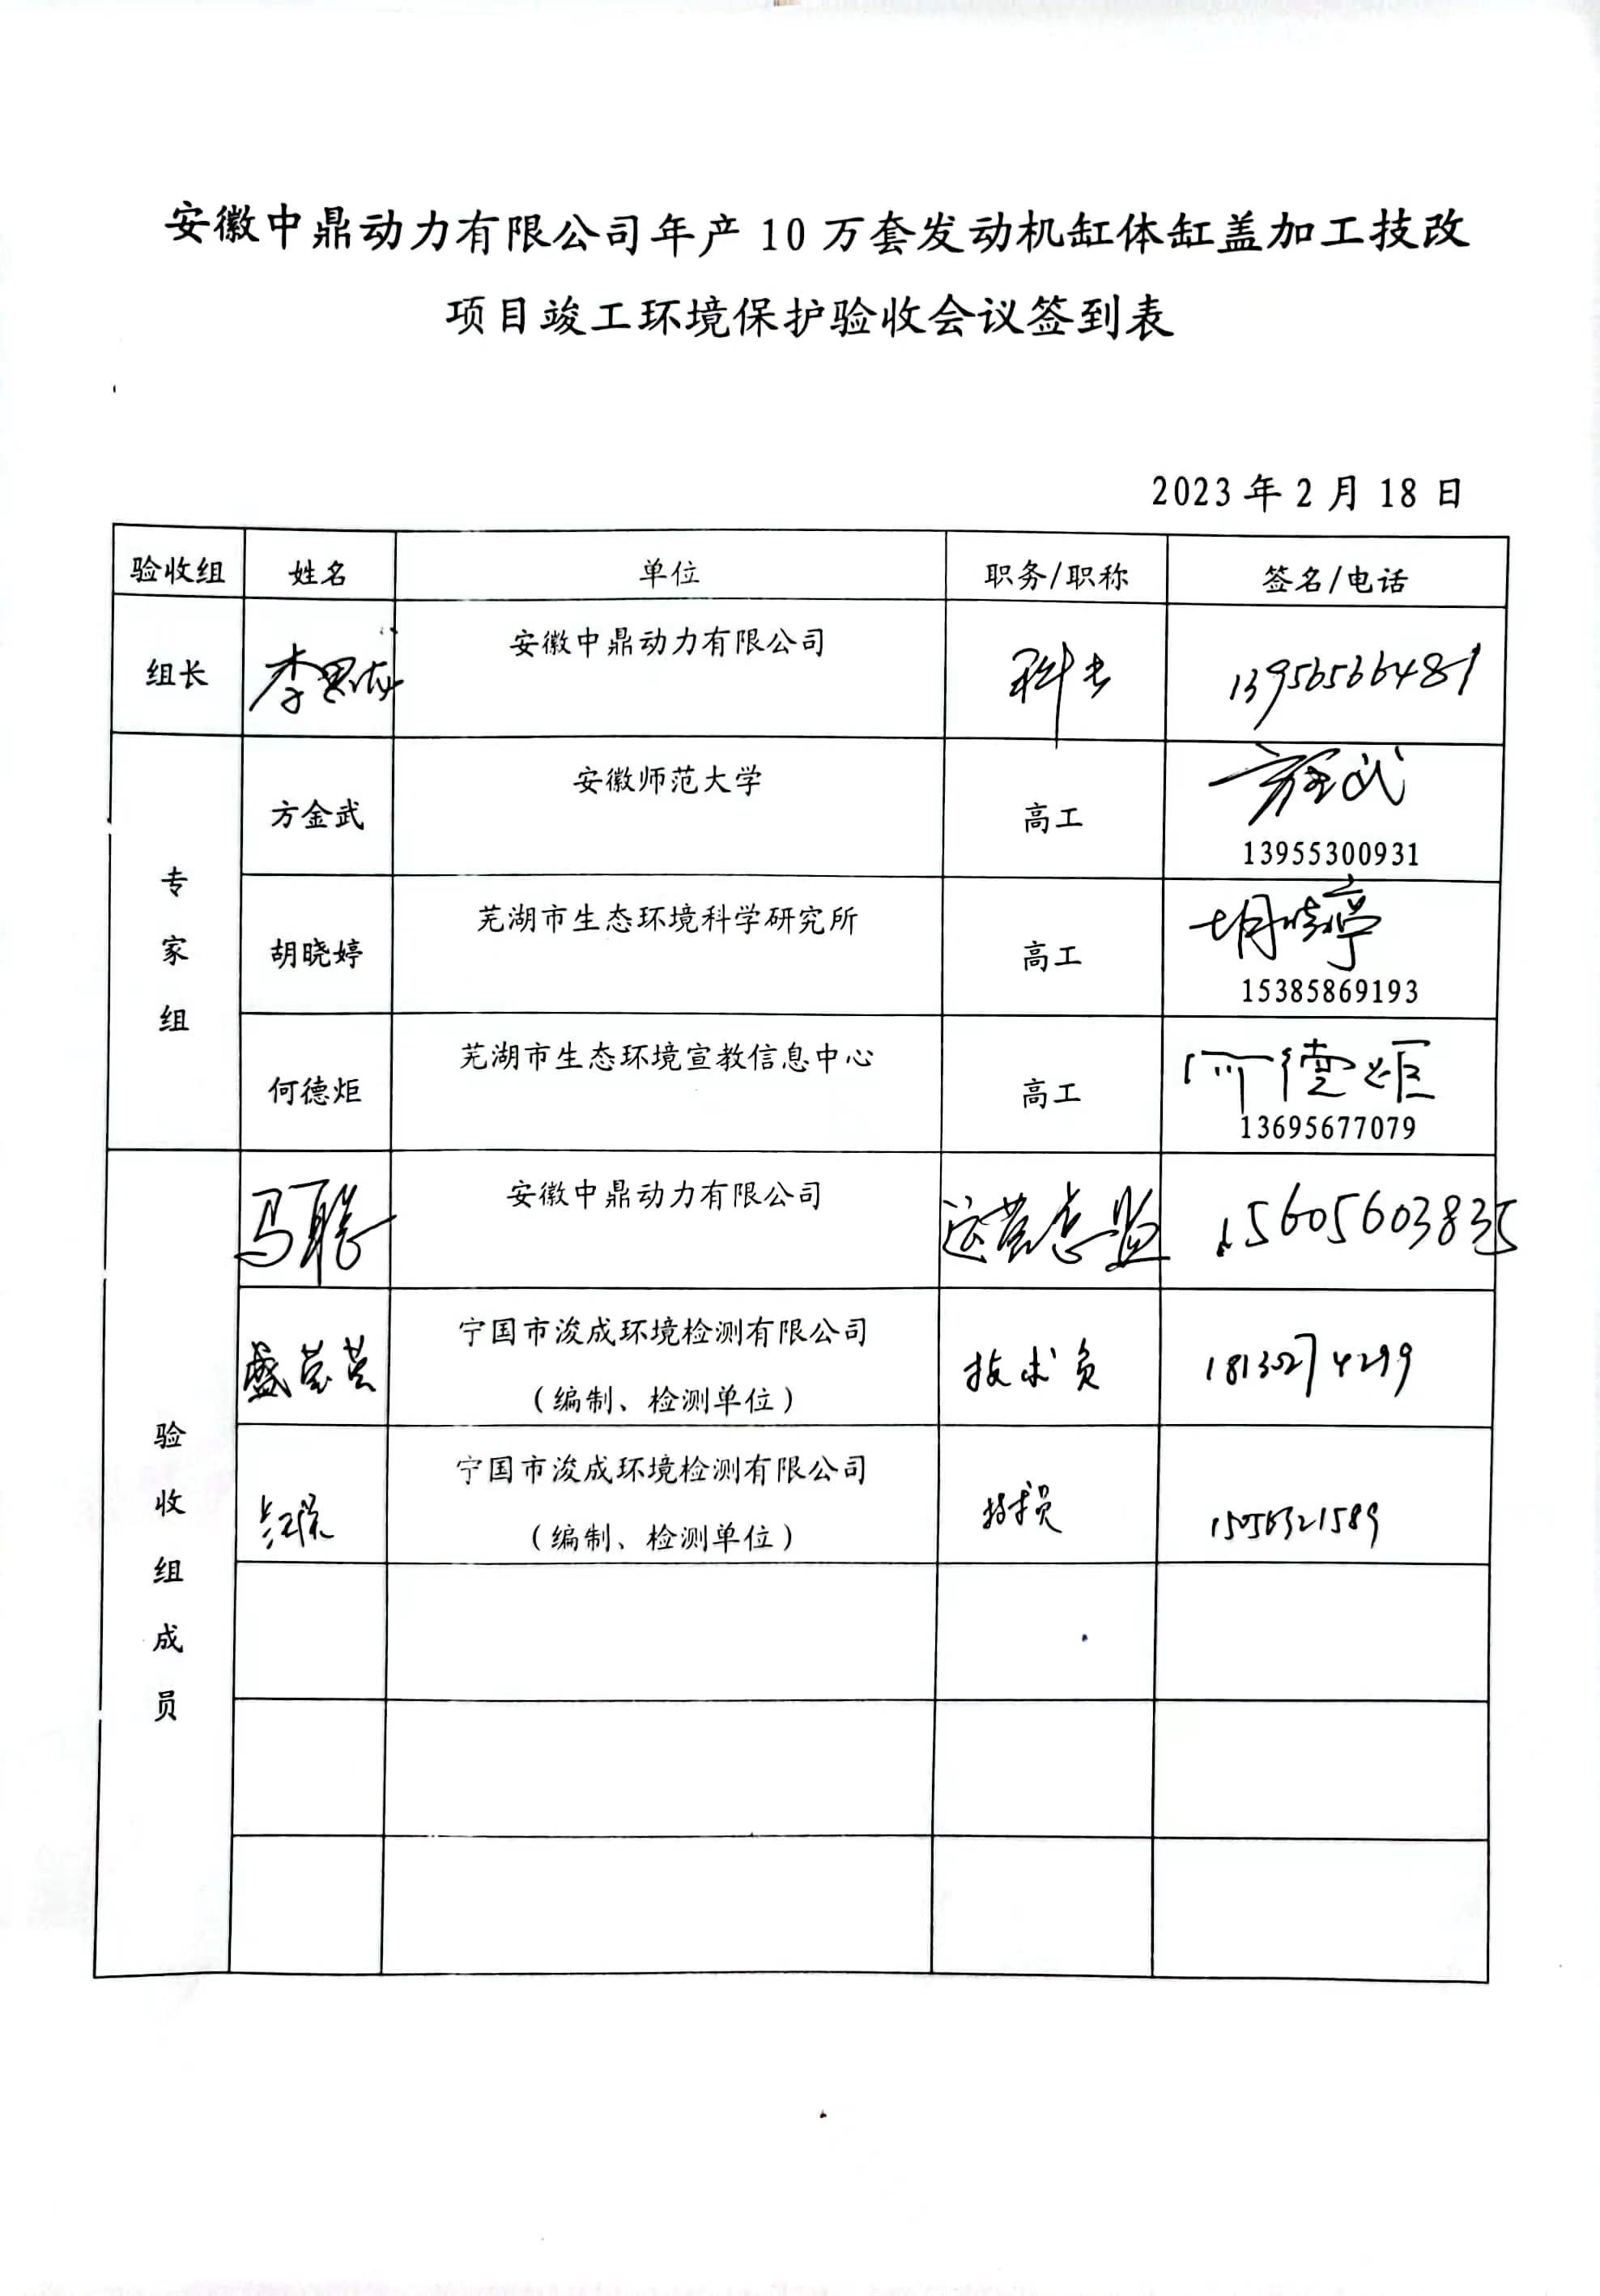 安徽中鼎动力有限公司年产 10 万套发动机缸体缸盖加工技改
项目竣工环境保护验收会议签到表
2023 年 2 月 18 日
验收组 姓名 单位 职务/职称 签名/电话
组长 李 安徽中鼎动力有限公司 科长 13956566481
专家组
方金武 安徽师范大学 高工 方金武
13955300931
胡晓婷 芜湖市生态环境科学研究所 高工 胡晓婷
15385869193
何德炬 芜湖市生态环境宣教信息中心 高工 何德炬
13695677079
验收组成员
马聪 安徽中鼎动力有限公司 运营总监 15605603835
盛 宁国市浚成环境检测有限公司 技术员 18130274299
（编制、检测单位）
宁国市浚成环境检测有限公司 技术员 15056321589
（编制、检测单位）